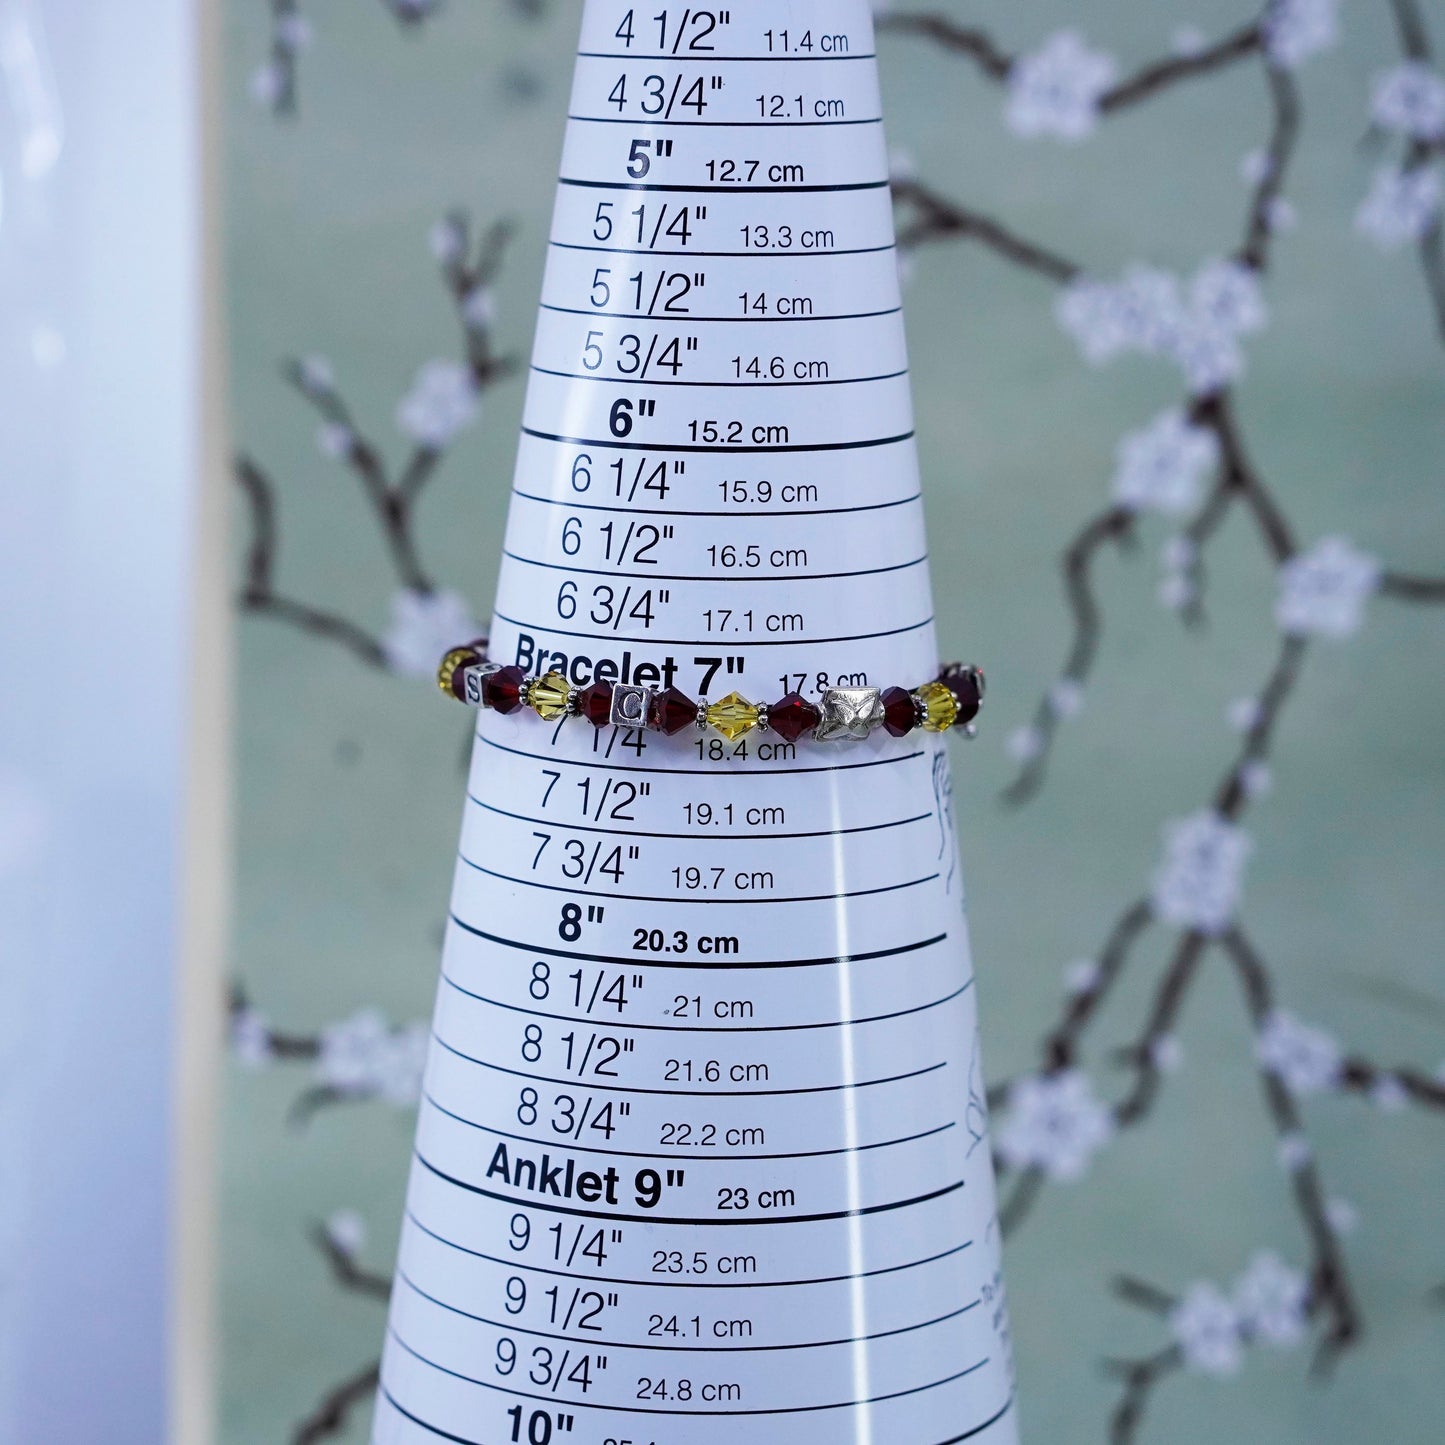 4 1/2" 11.4 cm
4 3/4" 12.1 cm
5" 12.7 cm
5 1/4" 13.3 cm
5 1/2" 14 cm
5 3/4" 14.6 cm
6" 15.2 cm
6 1/4" 15.9 cm
6 1/2" 16.5 cm
6 3/4" 17.1 cm
Bracelet 7" 17.8 cm
S C
7 1/4 18.4 cm
7 1/2" 19.1 cm
7 3/4" 19.7 cm
8" 20.3 cm
8 1/4" 21 cm
8 1/2" 21.6 cm
8 3/4" 22.2 cm
Anklet 9" 23 cm
9 1/4" 23.5 cm
9 1/2" 24.1 cm
9 3/4" 24.8 cm
10"